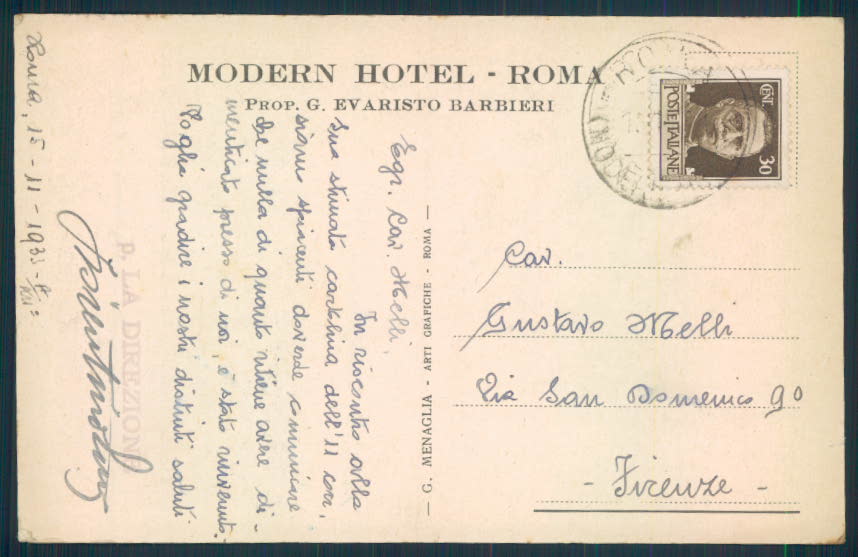 MODERN HOTEL - ROMA
PROP. G. EVARISTO BARBIERI
CENT. 30
POSTE ITALIANE
Roma, 15-11-1933-
XII°
Egr. Cav. Melli,
In riscontro alla
Sua stimata cartolina dell'11 corr,
siamo spiacenti doverLe comunicare
che nulla di quanto ritiene avere di-
menticato presso di noi, è stato rinvenuto.
Voglia gradire i nostri distinti saluti
p. LA DIREZIONE
— G. MENAGLIA - ARTI GRAFICHE - ROMA —
Cav.
Gustavo Melli
Via San Domenico 9°
- Firenze -